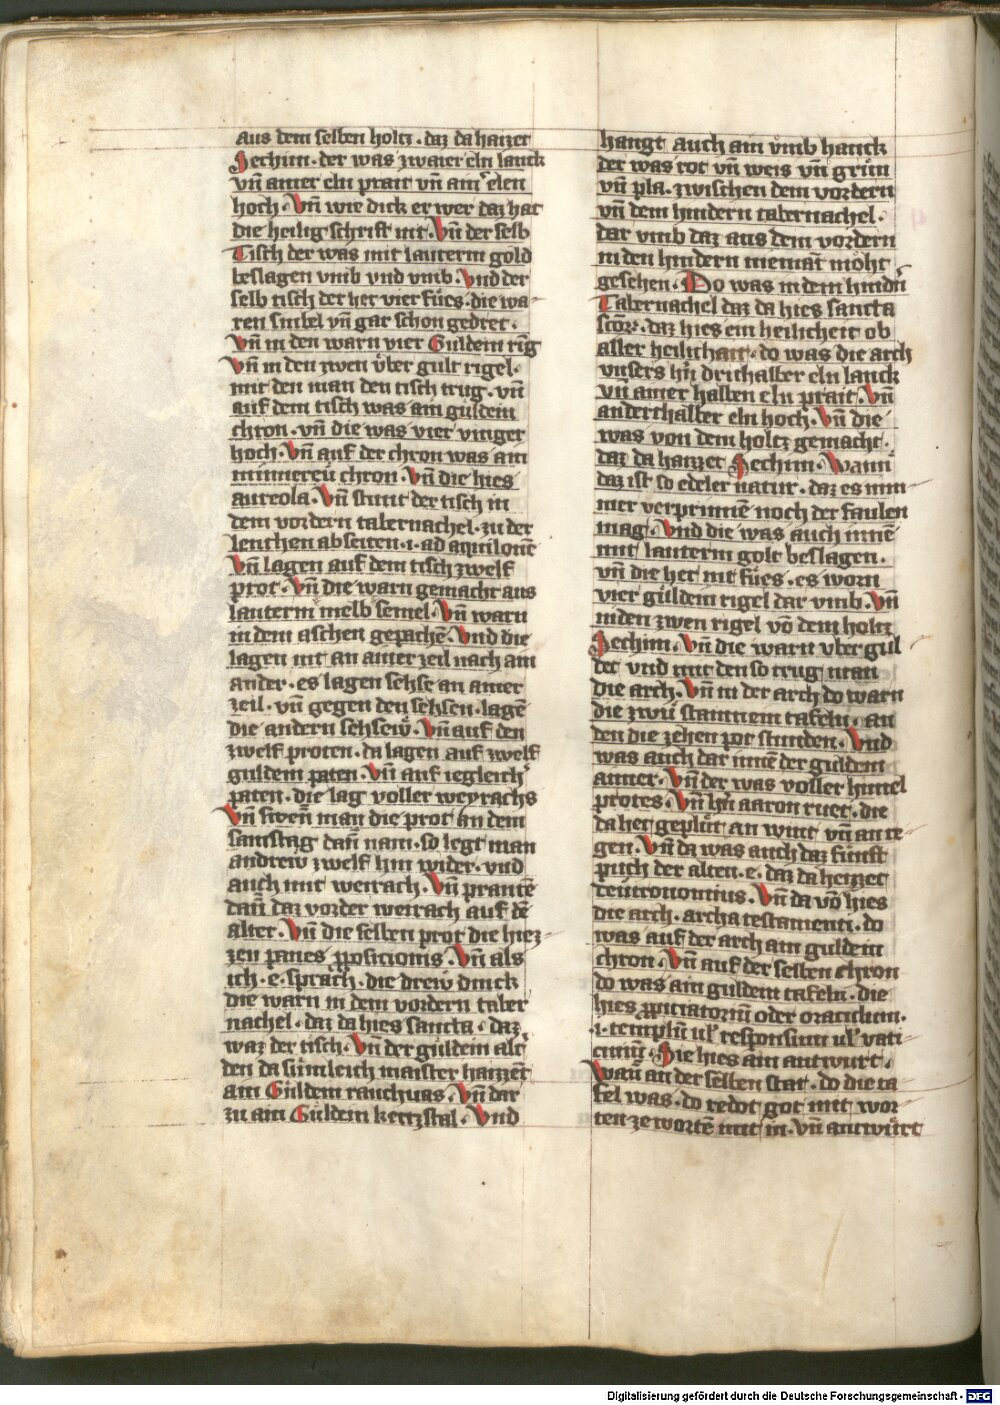 aus dem selben holtz · daz da haizzet
Sechim · der was zwaier eln lanck
vn̄ ainer eln prait vn̄ ain᷑ elen
hoch · Vn̄ wie dick er wer daz hat
die heilig schrift nit · Vn̄ der selb
Tisch der was mit lauterm gold
beslagen vmb vnd vmb · Vnd der
selb tisch der het vier fu̇es · die wa-
ren sinbel vn̄ gar schon gedret ·
Vn̄ in den warn vier Guldein ring
Vn̄ in den zwen u̇ber gult rigel ·
mit den man den tisch trug · vn̄
auf dem tisch was ain gu̇ldein
chron · vn̄ die was vier vinger
hoch · Vn̄ auf der chron was ain
minnereu̇ chron · Vn̄ die hies
aureola · Vn̄ stunt der tisch in
dem vordern tabernachel · zu der
lenchen abseiten · i · ad aquilonē
Vn̄ lagen auf dem tisch zwelf
prot · Vn̄ die warn gemacht aus
lauterm melb semel · Vn̄ warn
in dem aschen gepachē · Vnd die
lagen nit an ainer zeil nach ain
ander · es lagen sehse an ainer
zeil · vn̄ gegen den sehsen · lagē
die andern sehseu̇ · Vn̄ auf den
zwelf proten · da lagen auf zwelf
guldein paten · Vn̄ auf iegleich᷑
paten · die lag voller weyrachs
Vn̄ swen̄ man die prot an dem
samstag dan̄ nam · so legt man
andrew zwelf hin wider · vnd
auch mit weirach · Vn̄ prantē
dan̄ daz vorder weirach auf dē
alter · Vn̄ die selben prot die hiez-
zen panes ꝓposicionis · Vn̄ als
ich · e · sprach · die drew dinck
die warn in dem vordern taber
nachel · daz da hies sancta · daz
waz der tisch · Vn̄ der gu̇ldein alt᷑
den da su̇mleich maister haizzēt
ain Gu̇ldein rauchuas · Vn̄ dar
zu ain Gu̇ldein kertzstal · Vnd
hangt auch ain vmb hanck
der was rot vn̄ weis vn̄ gru̇n
vn̄ pla · zwischen dem vordern
vn̄ dem hindern tabernachel ·
dar vmb daz aus dem vordern
in den hindern niemāt mo̊ht
gesehen · Do was in dem hind᷑n
Tabernachel daz da hies sancta
sc̄oꝝ · daz hies ein heilicheit ob
aller heilichait · do was die arch
vnsers hn̄ drithalber eln lanck
vn̄ ainer halben eln prait · Vn̄
anderthalber eln hoch · Vn̄ die
was von dem holtz gemacht ·
daz da haizzet Sechim · Wann
daz ist so edeler natur · daz es nim-
mer verprinnē noch der faulen
mag · Vnd die was auch innē
mit lauterm golt beslagen ·
vn̄ die het nit fu̇es · es worn
vier gu̇ldein rigel dar vmb · Vn̄
in den zwen rigel vō dem holtz
Sechim · Vn̄ die warn vber gul
det vnd mit den so trug man
die arch · Vn̄ in der arch do warn
die zwu̇ stainnein tafeln · an
den die zehen pot stunden · Vnd
was auch dar innē der guldein
aimer · Vn̄ der was voller himel
protes · Vn̄ hn̄ aaron ruet · die
da het geplu̇t an wint vn̄ an re-
gen · Vn̄ da was auch daz fu̇nft
puch der alten · e · daz da heizzet
deutronomius · Vn̄ da vō hies
die arch · archa testamenti · do
was auf der arch ain guldein
chron · Vn̄ auf der selben chron
do was ain guldein tafeln · die
hies ꝓpiciatoriū oder oraculum ·
· i · templū ul᷑ responsum ul᷑ vati-
ciniū · Sie hies ain antwurt ·
Wan̄ an der selben stat · do die ta-
fel was · do redot got mit wor-
ten ze wortē mit in · vn̄ antwu̇rt
Digitalisierung gefördert durch die Deutsche Forschungsgemeinschaft - DFG